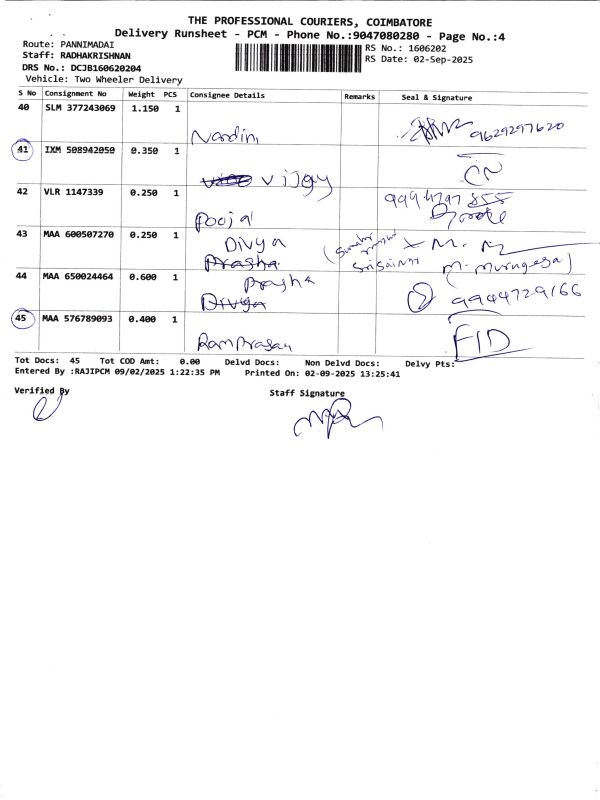 THE PROFESSIONAL COURIERS, COIMBATORE
Delivery Runsheet - PCM - Phone No.:9047080280 - Page No.:4
Route: PANNIMADAI
Staff: RADHAKRISHNAN
DRS No.: DCJB160620204
Vehicle: Two Wheeler Delivery
RS No.: 1606202
RS Date: 02-Sep-2025
S No Consignment No Weight PCS Consignee Details Remarks Seal & Signature
40 SLM 377243069 1.150 1
9629297620
41 IXM 508942050 0.350 1 Vijay CN
42 VLR 1147339 0.250 1 Pooja
43 MAA 600507270 0.250 1 Divya
Prasha
M. Murugesa)
44 MAA 650024464 0.600 1 Prasha
Divya
9944729166
45 MAA 576789093 0.400 1 Ramprasan FID
Tot Docs: 45 Tot COD Amt: 0.00 Delvd Docs: Non Delvd Docs: Delvy Pts:
Entered By :RAJIPCM 09/02/2025 1:22:35 PM Printed On: 02-09-2025 13:25:41
Verified By
Staff Signature